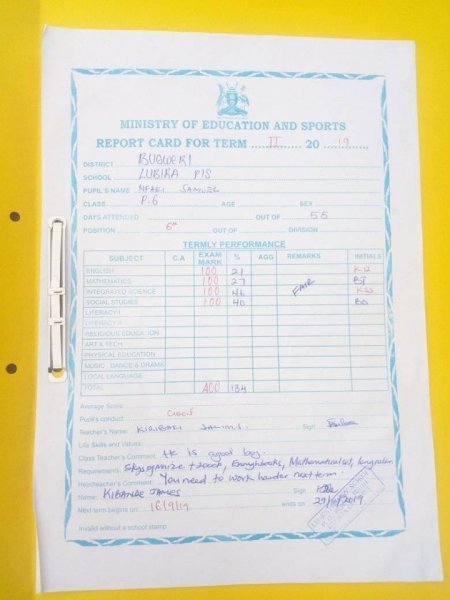 MINISTRY OF EDUCATION AND SPORTS
REPORT CARD FOR TERM II 20 19
DISTRICT BUGWERI
SCHOOL LUBIRA P/S
PUPIL'S NAME SAMUEL
CLASS P.6 AGE SEX
DAYS ATTENDED OUT OF 55
POSITION 6th OUT OF DIVISION
TERMLY PERFORMANCE
SUBJECT C.A EXAM MARK % AGG REMARKS INITIALS
ENGLISH 100 21
MATHEMATICS 100 27
INTEGRATED SCIENCE 100 46 FAIR
SOCIAL STUDIES 100 40
LITERACY-I
LITERACY-II
RELIGIOUS EDUCATION
ART & TECH
PHYSICAL EDUCATION
MUSIC, DANCE & DRAMA
LOCAL LANGUAGE
TOTAL 400 134
Average Score
Pupil's conduct Good
Teacher's Name: Sign
Life Skills and Values:
Class Teacher's Comment: He is a good boy.
Requirements: books, Mathematical set,
Headteacher's Comment: You need to work harder next term.
Name: JAMES Sign
Next term begins on 16/9/19 ends on 29/11/2019
Invalid without a school stamp